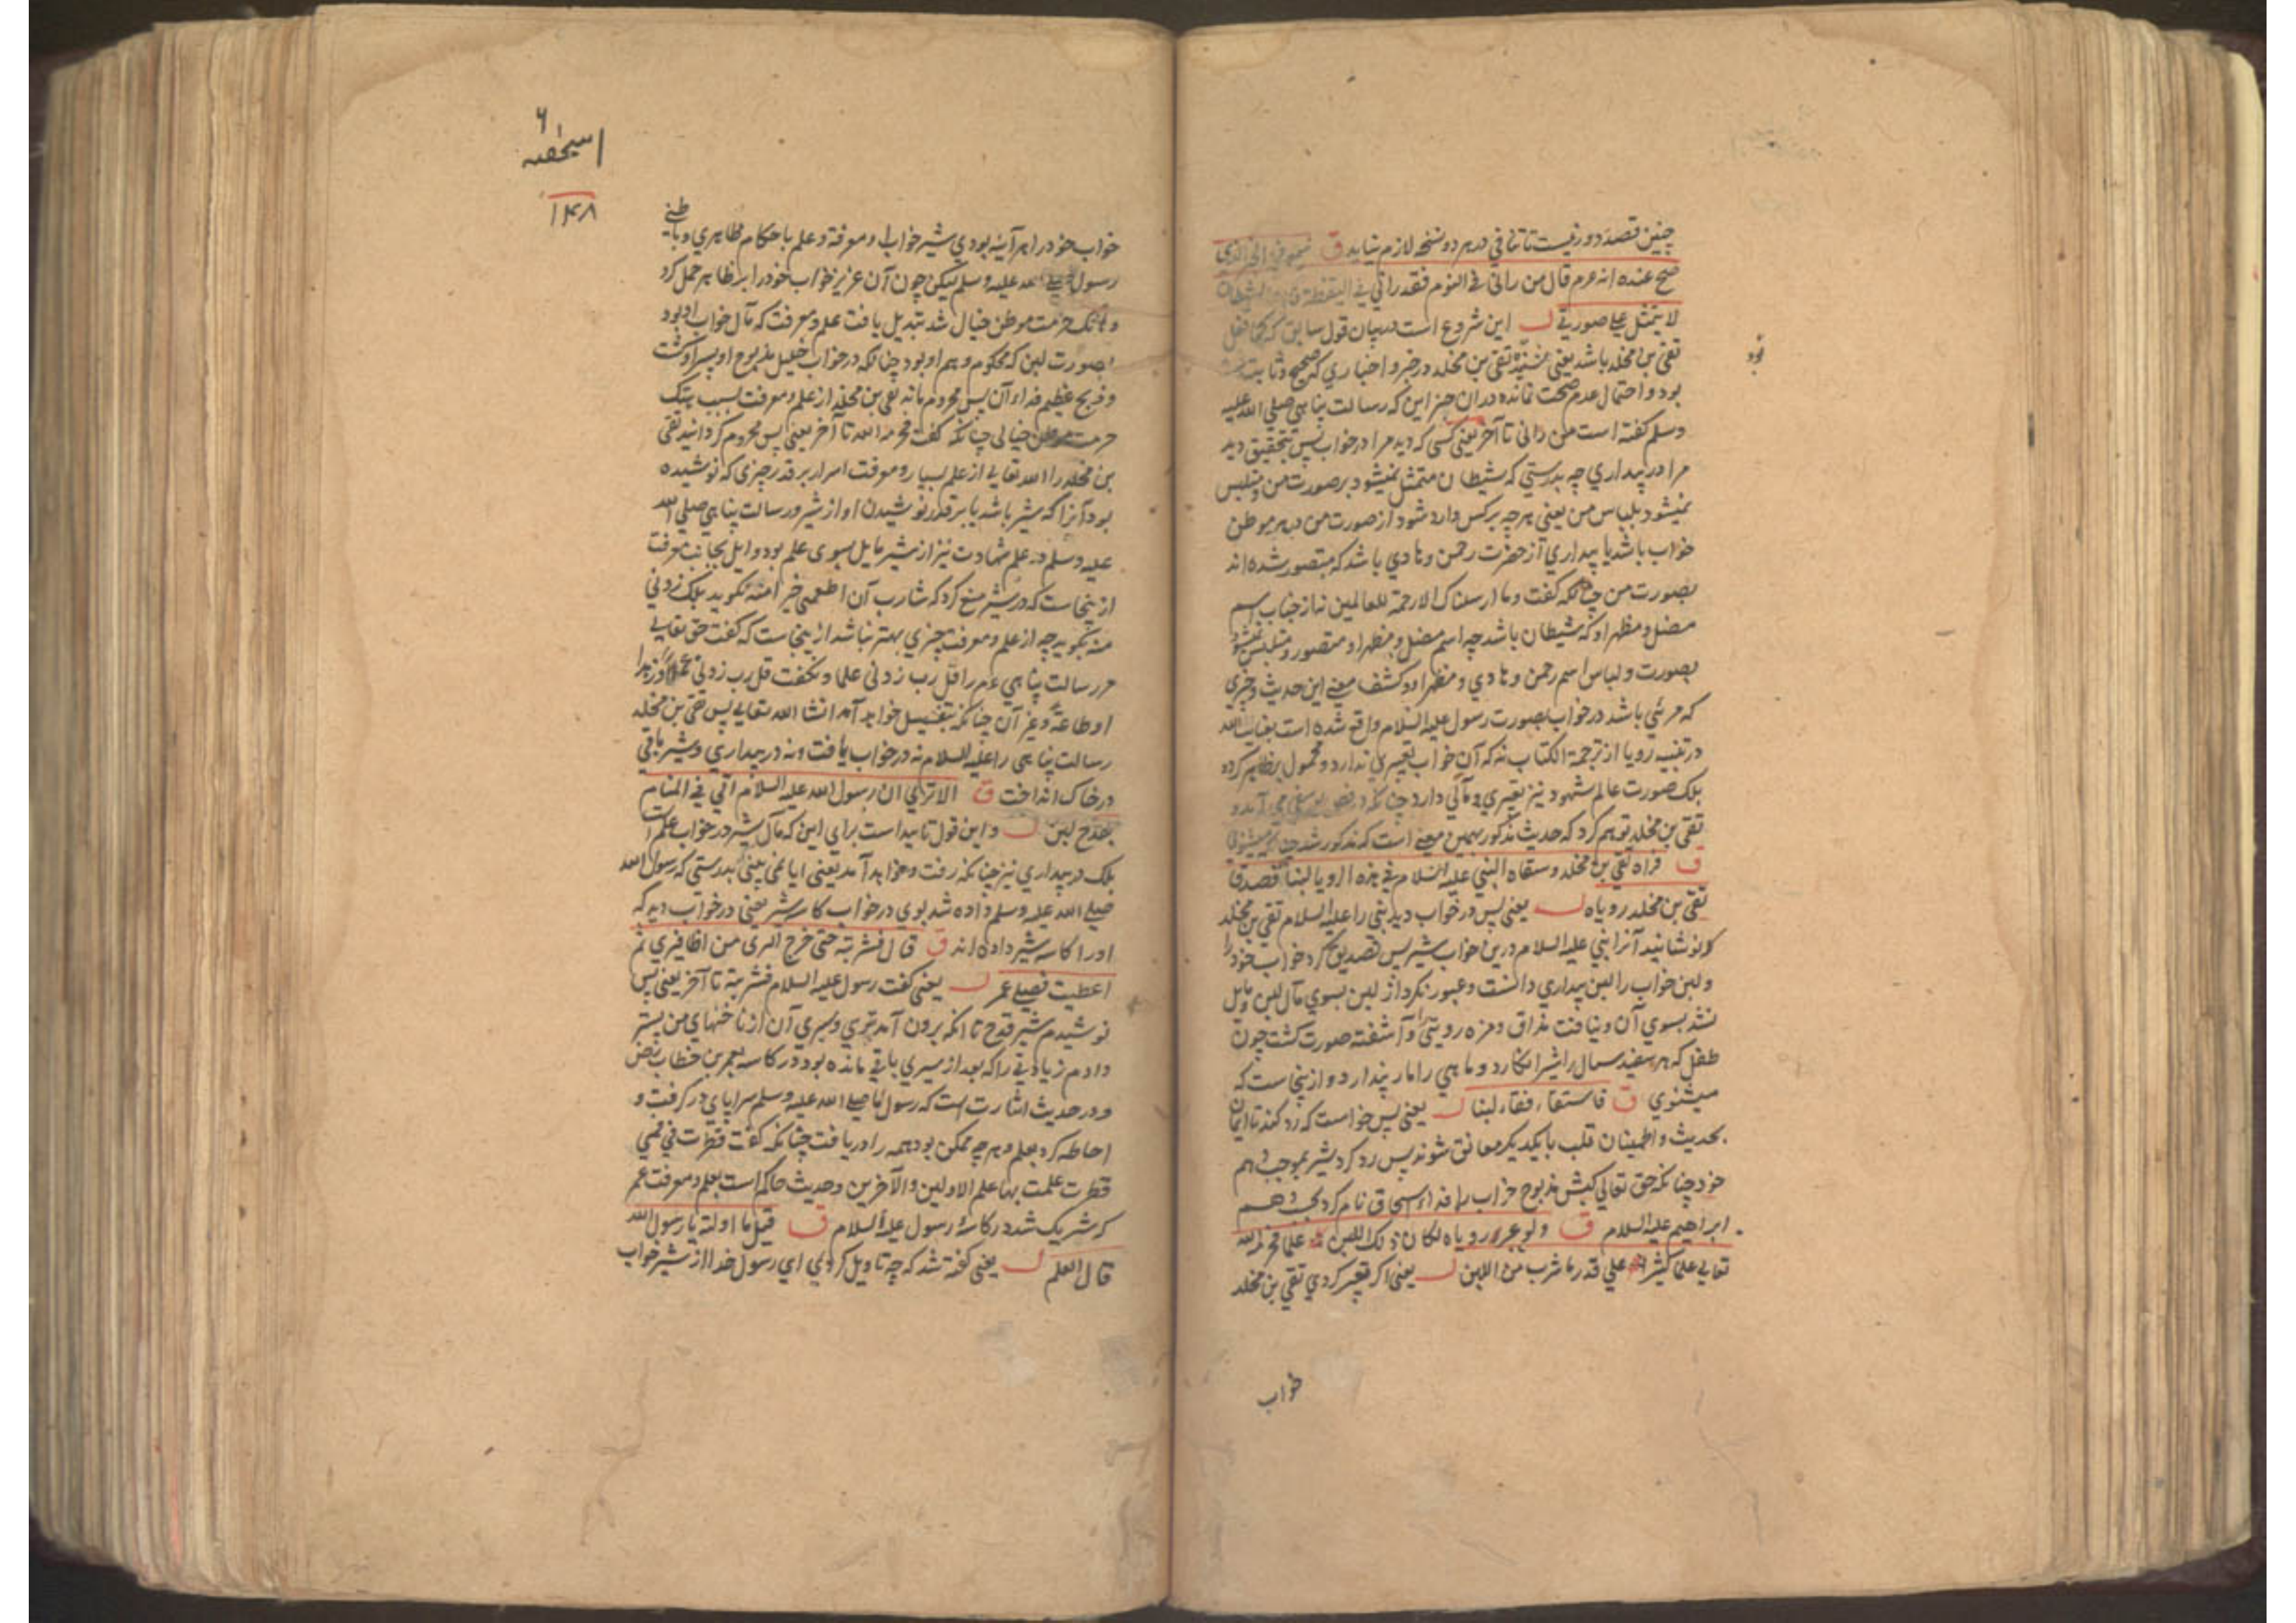 چنین قصد دور نیست تا تنافی در هر دو نسخه لازم نیاید ق فی الخبر الذی
صح عنده انه عم قال من رانی فی النوم فقد رانی فی الیقظة فان الشیطان
لا یتمثل علی صورتی ل این شروع است در بیان قول سابق که
تقی بن مخلد باشد یعنی تقی بن مخلد در خبر و اخباری که صحیح و ثابت
بود و احتمال عدم صحت نمانده در ان جز این که رسالت پناهی صلی الله علیه
وسلم گفته است من رانی تا آخر یعنی کسی که دید مرا در خواب پس بتحقیق دید
مرا در بیداری چه بدرستی که شیطان متمثل نمیشود بر صورت من و متلبس
نمیشود بلباس من یعنی هر چه بر کس وارد شود از صورت من در هر موطن
خواب باشد یا بیداری از حضرت رحمن و هادی باشد که متصور شده اند
بصورت من چنانکه گفت وما ارسلناک الا رحمة للعالمین نه از جناب اسم
مضل و مظهر او که شیطان باشد چه اسم مضل و مظهر او متصور و متلبس نمیشود
بصورت و لباس اسم رحمن و هادی و مظهر او و کشف معنی این حدیث و چیزی
که مرئی باشد در خواب بصورت رسول علیه السلام واقع شده است
در تنبیه رویا از ترجمة الکتاب نه که آن خواب تعبیری ندارد و محمول بر ظاهر کرد
بلک صورت عالم شهود نیز تعبیری و مآلی دارد چنانکه در فص یوسفی می آید و
تقی بن مخلد توهم کرد که حدیث مذکور بهمین معنی است که مذکور شد
ق فراه تقی بن مخلد وسقاه النبی علیه السلام فی هذه الرویا لبنا فصدق
تقی بن مخلد رویاه ل یعنی پس در خواب دید نبی را علیه السلام تقی بن مخلد
که نوشانید آنرا نبی علیه السلام درین خواب شیر پس تصدیق کرد خواب خود را
و لبن خواب را لبن بیداری دانست و عبور نکرد از لبن بسوی مآل لبن و مایل
نشد بسوی آن و نیافت مذاق و مزه رویتی را و آشفته صورت گشت چون
طفل که هر سفید سمال را شیر انگارد و ماهی را مار پندارد و از ینجاست که
میشنوی ق فاستقاء فقاء لبنا ل یعنی پس خواست که رد کند تا ایمان
بحدیث و اطمینان قلب با یکدیگر معانق شوند پس رد کرد شیر بموجب وهم
خود چنانکه حق تعالی کبش مذبوح خواب را فداء اسحاق نام کرد بحسب وهم
ابراهیم علیه السلام ق ولو عبر رویاه لکان ذلک اللبن علما فحرمه الله
تعالی علما کثیرا علی قدر ما شرب من اللبن ل یعنی اگر تعبیر کردی تقی بن مخلد
خواب
۱۴۸
خواب خود را هر آینه بودی شیر خواب او معرفة و علم باحکام ظاهری و باطنی
رسول صلی الله علیه وسلم لیکن چون آن عزیز خواب خود را بر ظاهر حمل کرد
و هتک حرمت موطن خیال شد تبدیل یافت علم و معرفت که مآل خواب او بود
بصورت لبن که محکوم وهم او بود چنانکه در خواب خلیل مذبوح او پسر او گشت
و ذبح عظیم فداء آن پس محروم ماند تقی بن مخلد از علم و معرفت بسبب هتک
حرمت موطن خیالی چنانکه گفت فحرمه الله تا آخر یعنی پس محروم گردانید تقی
بن مخلد را الله تعالی از علم بسیار و معرفت اسرار بر قدر چیزی که نوشیده
بود آنرا که شیر باشد یا بر قدر نوشیدن او از شیر و رسالت پناهی صلی الله
علیه وسلم در علم شهادت نیز از شیر مایل بسوی علم بود و ایل بجانب معرفت
از ینجاست که در شیر منع کرد که شارب آن اطعمنی خیرا منه نگوید بلک زدنی
منه بگوید چه از علم و معرفت چیزی بهتر نباشد از ینجاست که گفت حق تعالی
مر رسالت پناهی عم را قل رب زدنی علما و نگفت قل رب زدنی عملا و زهدا
او طاعة و غیر آن چنانکه بتفصیل خواهد آمد انشا الله تعالی پس تقی بن مخلد
رسالت پناهی را علیه السلام نه در خواب یافت و نه در بیداری و شیر باقی
در خاک انداخت ق الا تری ان رسول الله علیه السلام اتی فی المنام
بقدح لبن ل و این قول تایید است برای این که مآل شیر در خواب علم است
بلک در بیداری نیز چنانکه رفت و خواهد آمد یعنی ایا نمی بینی بدرستی که رسول الله
صلی الله علیه وسلم داده شد بوی در خواب کاسه شیر یعنی در خواب دید که
او را کاسه شیر داده اند ق قال فشربته حتی خرج الری من اظافیری ثم
اعطیت فضلی عمر ل یعنی گفت رسول علیه السلام فشربته تا آخر یعنی پس
نوشیدم شیر قدح تا انکه برون آمد تری و سیری آن از ناخنهای من پستر
دادم زیادتی را که بعد از سیری باقی مانده بود در کاسه بعمر بن خطاب رض
و در حدیث اشارت است که رسول ما صلی الله علیه وسلم سراپای در گرفت و
احاطه کرد بعلم و هر چه ممکن بود همه را دریافت چنانکه گفت قطرت فی فمی
قطرت علمت بها علم الاولین والآخرین و حدیث حاکم است بعلم و معرفت عمر
که شریک شد در کاسه رسول علیه السلام ق قیل ما اولته یا رسول الله
قال العلم ل یعنی گفته شد که چه تاویل کردی ای رسول خدا از شیر خواب